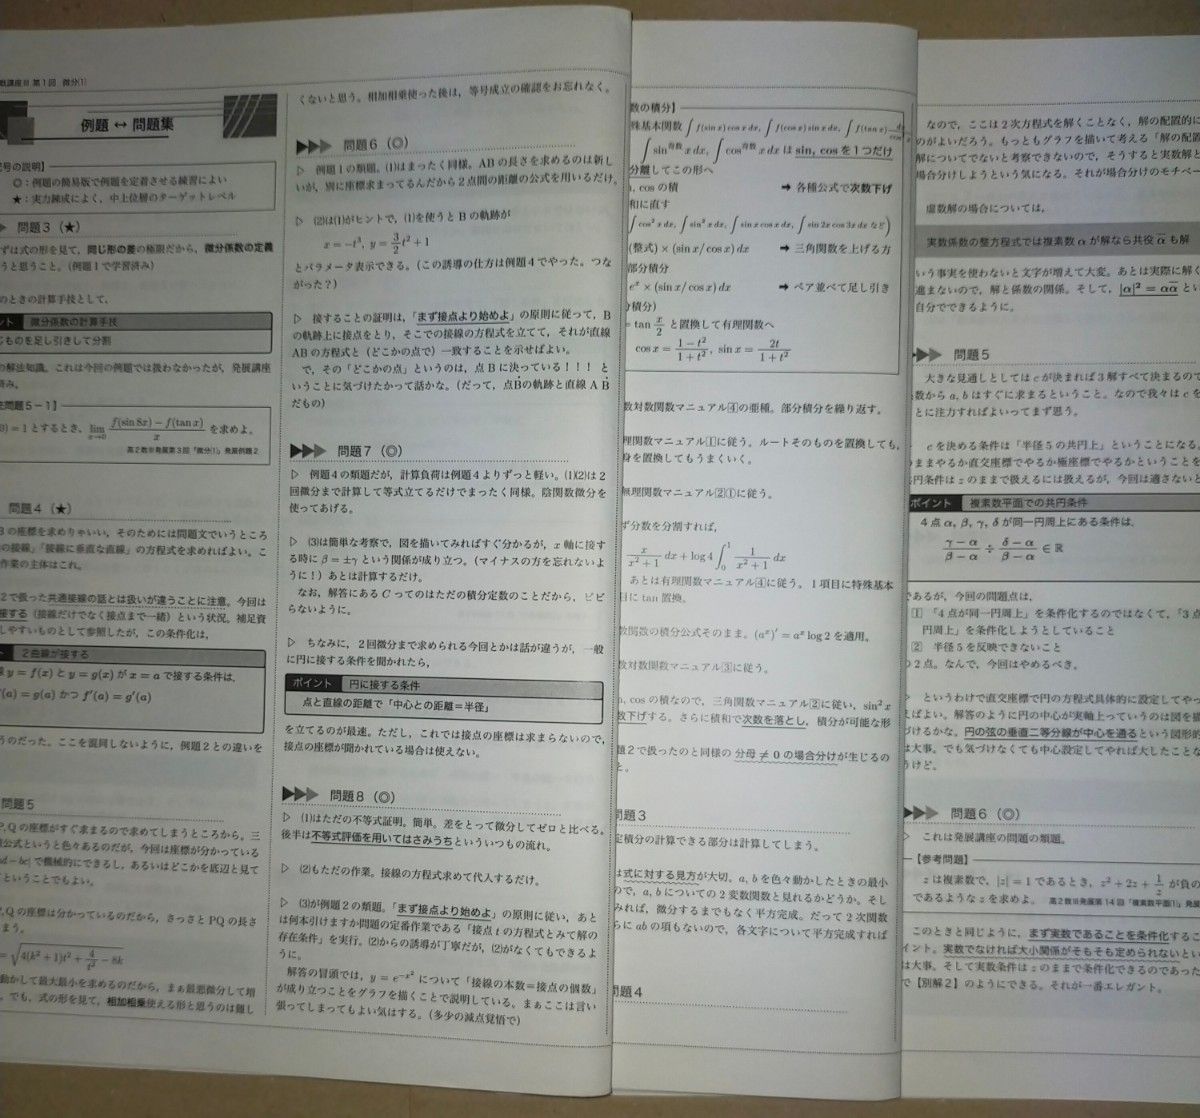 戦講座Ⅲ 第1回 微分(1)
例題 ↔ 問題集
号の説明】
◎:例題の簡易版で例題を定着させる練習によい
★:実力錬成によく、中上位層のターゲットレベル
問題3(★)
ずは式の形を見て,同じ形の差の極限だから,微分係数の定義
うと思うこと。(例題1で学習済み)
のときの計算手技として,
ント 微分係数の計算手技
じものを足し引きして分割
の解法知識。これは今回の例題では扱わなかったが,発展講座
済み。
問題5-1】
)=1とするとき, lim x→0 f(sin 8x) − f(tan x) / x を求めよ。
高2数Ⅲ発展第3回「微分(1)」発展例題2
問題4(★)
の座標を求めりゃいい,そのためには問題文でいうところ
の接線」「接線に垂直な直線」の方程式を求めればよい。こ
作業の主体はこれ。
2で扱った共通接線の話とは扱いが違うことに注意。今回は
接する(接線だけでなく接点まで一緒)という状況。補足資
しやすいものとして参照したが,この条件化は,
ト 2曲線が接する
y = f(x) と y = g(x) が x = a で接する条件は,
(a) = g(a) かつ f'(a) = g'(a)
うのだった。ここを混同しないように,例題2との違いを
問題5
P,Qの座標がすぐ求まるので求めてしまうところから。三
公式というと色々あるのだが,今回は座標が分かっている
ad − bc| で機械的にできるし,あるいはどこかを底辺と見て
ということでもよい。
P,Qの座標は分かっているのだから,さっさとPQの長さ
まう。
= √4(k²+1)t² + 4/t² − 8k
動かして最大最小を求めるのだから,まぁ最悪微分して増
。でも,式の形を見て,相加相乗使える形と思うのは難し
くないと思う。相加相乗使った後は,等号成立の確認をお忘れなく。
▶▶▶ 問題6(◎)
▷ 例題1の類題。(1)はまったく同様。ABの長さを求めるのは新し
いが,別に座標求まってるんだから2点間の距離の公式を用いるだけ。
▷ (2)は(1)がヒントで,(1)を使うとBの軌跡が
x = −t³, y = 3/2 t² + 1
とパラメータ表示できる。(この誘導の仕方は例題4でやった。つな
がった?)
▷ 接することの証明は,「まず接点より始めよ」の原則に従って,B
の軌跡上に接点をとり,そこでの接線の方程式を立てて,それが直線
ABの方程式と(どこかの点で)一致することを示せばよい。
で,その「どこかの点」というのは,点Bに決っている!!! と
いうことに気づけたかって話かな。(だって,点Bの軌跡と直線AB
だもの)
▶▶▶ 問題7(◎)
▷ 例題4の類題だが,計算負荷は例題4よりずっと軽い。(1)(2)は2
回微分まで計算して等式立てるだけでまったく同様。陰関数微分を
使ってあげる。
▷ (3)は簡単な考察で,図を描いてみればすぐ分かるが,x軸に接す
る時に β = ±γ という関係が成り立つ。(マイナスの方を忘れないよ
うに!)あとは計算するだけ。
なお,解答にあるCってのはただの積分定数のことだから,ビビ
らないように。
▷ ちなみに,2回微分まで求められる今回とかは話が違うが,一般
に円に接する条件を聞かれたら,
ポイント 円に接する条件
点と直線の距離で「中心との距離=半径」
を立てるのが最速。ただし,これでは接点の座標は求まらないので,
接点の座標が聞かれている場合は使えない。
▶▶▶ 問題8(◎)
▷ (1)はただの不等式証明。簡単。差をとって微分してゼロと比べる。
後半は不等式評価を用いてはさみうちといういつもの流れ。
▷ (2)もただの作業。接線の方程式求めて代入するだけ。
▷ (3)が例題2の類題。「まず接点より始めよ」の原則に従い,あと
は何本引けますか問題の定番作業である「接点tの方程式とみて解の
存在条件」を実行。(2)からの誘導が丁寧だが,(2)がなくてもできるよ
うに。
解答の冒頭では,y = e^{−x²} について「接線の本数=接点の個数」
が成り立つことをグラフを描くことで説明している。まぁここは言い
張ってしまってもよい気はする。(多少の減点覚悟で)
数の積分】
殊基本関数 ∫ f(sin x) cos x dx, ∫ f(cos x) sin x dx, ∫ f(tan x)
∫ sin^{奇数} x dx, ∫ cos^{奇数} x dx は sin, cos を1つだけ
分離してこの形へ
, cos の積 ➡ 各種公式で次数下げ
和に直す
∫ cos² x dx, ∫ sin² x dx, ∫ sin x cos x dx, ∫ sin 2x cos 3x dx など)
(整式) × (sin x/ cos x) dx ➡ 三角関数を上げる方
部分積分
e^x × (sin x/ cos x) dx ➡ ペア並べて足し引き
積分)
= tan x/2 と置換して有理関数へ
cos x = 1−t² / 1+t², sin x = 2t / 1+t²
数対数関数マニュアル④の亜種。部分積分を繰り返す。
理関数マニュアル①に従う。ルートそのものを置換しても,
身を置換してもうまくいく。
無理関数マニュアル②①に従う。
ず分数を分割すれば,
x / x²+1 dx + log 4 ∫₀¹ 1 / x²+1 dx
あとは有理関数マニュアル④に従う。1項目に特殊基本
目に tan 置換。
数関数の積分公式そのまま。(a^x)' = a^x log 2 を適用。
数対数関数マニュアル③に従う。
, cos の積なので,三角関数マニュアル②に従い,sin² x
数下げする。さらに積和で次数を落とし,積分が可能な形
題2で扱ったのと同様の 分母 ≠ 0 の場合分けが生じるの
と。
問題3
定積分の計算できる部分は計算してしまう。
は式に対する見方が大切。a, b を色々動かしたときの最小
ので,a, b についての2変数関数と見れるかどうか。そし
みれば,微分するまでもなく平方完成。だって2次関数
らに ab の項もないので,各文字について平方完成すれば
問題4
なので,ここは2次方程式を解くことなく,解の配置的に
のがよいだろう。もっともグラフを描いて考える「解の配置
解についてでないと考察できないので,そうすると実数解と
場合分けしようという気になる。それが場合分けのモチベー
虚数解の場合については,
実数係数の整方程式では複素数 α が解なら共役 ᾱ も解
いう事実を使わないと文字が増えて大変。あとは実際に解く
進まないので,解と係数の関係。そして,|α|² = αᾱ とい
自分でできるように。
▶▶ 問題5
大きな見通しとしては c が決まれば3解すべて決まるので
数から a, b はすぐに求まるということ。なので我々は c を
とに注力すればよいってまず思う。
c を決める条件は「半径5の共円上」ということになる。
ままやるか直交座標でやるか極座標でやるかということを
円条件は z のままで扱えるには扱えるが,今回は適さないと
ポイント 複素数平面での共円条件
4点 α, β, γ, δ が同一円周上にある条件は,
γ−α / β−α ÷ δ−α / β−α ∈ ℝ
であるが,今回の問題点は,
① 「4点が同一円周上」を条件化するのではなくて,「3点
円周上」を条件化しようとしていること
② 半径5を反映できないこと
の2点。なんで,今回はやめるべき。
というわけで直交座標で円の方程式具体的に設定してやっ
ばよい。解答のように円の中心が実軸上っていうのは図を描
づけるかな。円の弦の垂直二等分線が中心を通るという図形的
は大事。でも気づけなくても中心設定してやれば大したことな
うけど。
▶▶▶ 問題6(◎)
▷ これは発展講座の問題の類題。
【参考問題】
z は複素数で,|z| = 1 であるとき,z² + 2z + 1/z が負の
であるような z を求めよ。 高2数Ⅲ発展第14回「複素数平面(1)」発展
このときと同じように,まず実数であることを条件化するこ
イント。実数でなければ大小関係がそもそも定められないとい
は大事。そして実数条件は z のままで条件化できるのであった
で【別解2】のようにできる。それが一番エレガント。